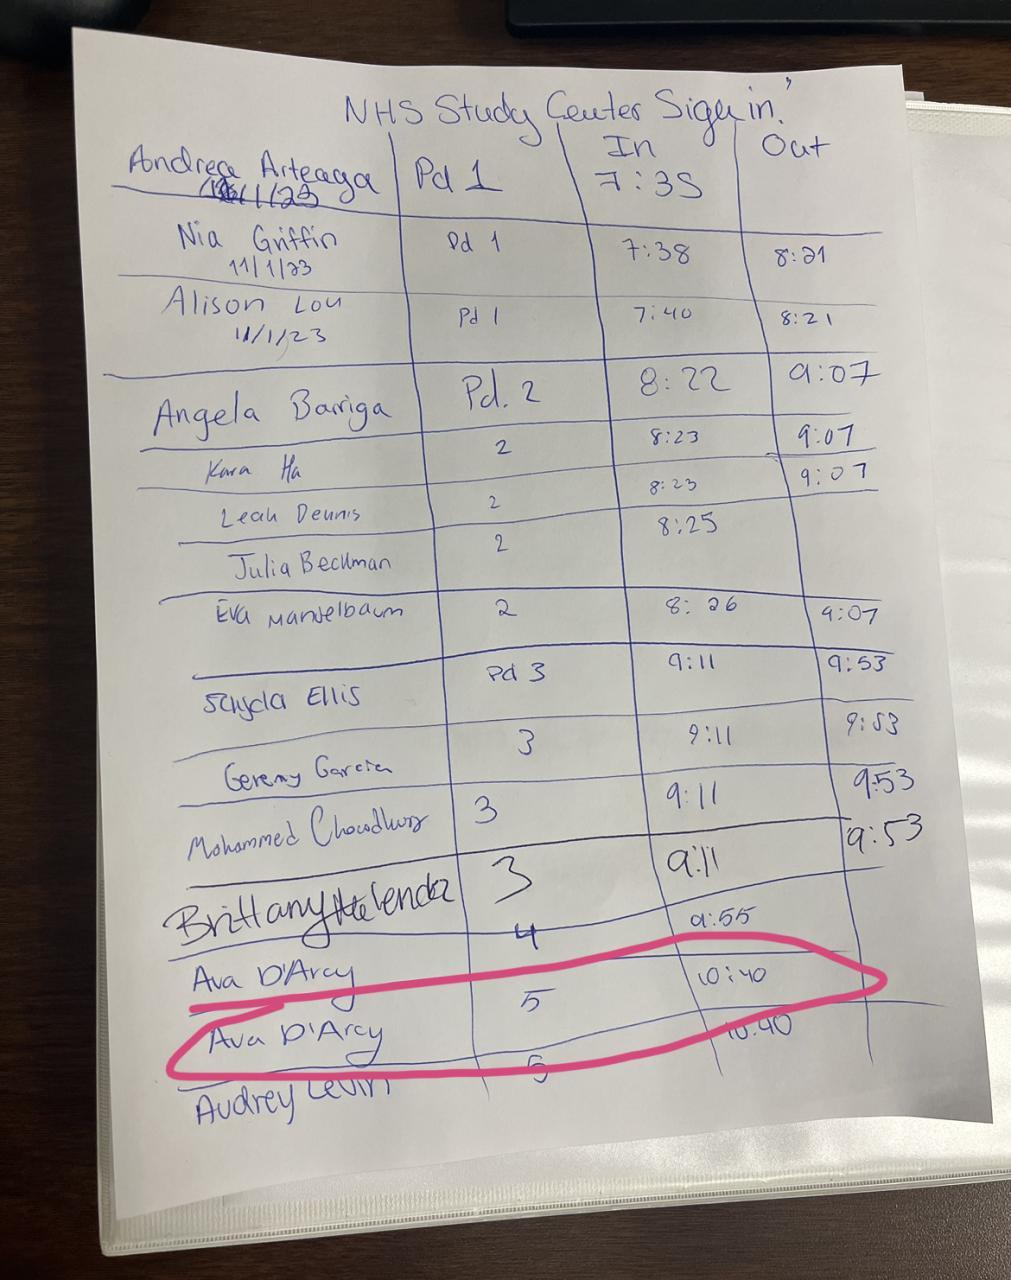 NHS Study Center Sign in!
In Out
Andrea Arteaga Pd 1 7:35
11/1/23
Nia Griffin Pd 1 7:38 8:21
11/1/23
Alison Lou Pd 1 7:40 8:21
11/1/23
Angela Barriga Pd. 2 8:22 9:07
Kara Ha 2 8:23 9:07
Leah Dennis 2 8:23 9:07
Julia Beckman 2 8:25
Eva Mandelbaum 2 8:26 9:07
Ellis Pd 3 9:11 9:53
Geremy Garcia 3 9:11 9:53
Mohammed Chowdhury 3 9:11 9:53
Brittany Melendez 3 9:11 9:53
Ava D'Arcy 4 9:55
Ava D'Arcy 5 10:40
Audrey Levin 5 10:40